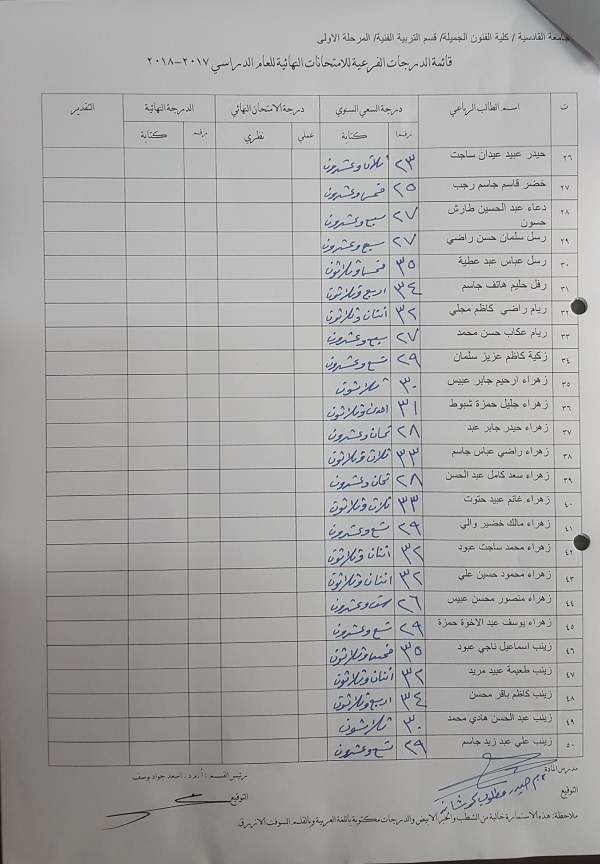 جامعة القادسية / كلية الفنون الجميلة/ قسم التربية الفنية/ المرحلة الاولى
قائمة الدرجات الفرعية للامتحانات النهائية للعام الدراسي ٢٠١٧-٢٠١٨
ت اسم الطالب الرباعي درجة السعي السنوي درجة الامتحان النهائي الدرجة النهائية التقدير
رقما كتابة عملي نظري رقم كتابة
٢٦ حيدر عبيد عيدان ساجت ٢٣ ثلاث وعشرون
٢٧ خضر قاسم جاسم رجب ٢٥ خمس وعشرون
٢٨ دعاء عبد الحسين طارش حسون ٢٧ سبع وعشرون
٢٩ رسل سلمان حسن راضي ٢٧ سبع وعشرون
٣٠ رسل عباس عبد عطية ٣٥ خمس وثلاثون
٣١ رفل حليم هاتف جاسم ٣٤ اربع وثلاثون
٣٢ ريام راضي كاظم مجلي ٣٢ أثنان وثلاثون
٣٣ ريام عكاب حسن محمد ٢٧ سبع وعشرون
٣٤ زكية كاظم عزيز سلمان ٢٩ تسع وعشرون
٣٥ زهراء ارحيم جابر عبيس ٣٠ ثلاثون
٣٦ زهراء جليل حمزة شبوط ٣١ احدى وثلاثون
٣٧ زهراء حيدر جابر عبد ٢٨ ثمان وعشرون
٣٨ زهراء راضي عباس جاسم ٣٣ ثلاث وثلاثون
٣٩ زهراء سعد كامل عبد الحسن ٢٨ ثمان وعشرون
٤٠ زهراء غانم عبيد حتوت ٣٣ ثلاث وثلاثون
٤١ زهراء مالك خضير والي ٢٩ تسع وعشرون
٤٢ زهراء محمد ساجت عبود ٣٢ أثنان وثلاثون
٤٣ زهراء محمود حسين علي ٣٢ اثنان وثلاثون
٤٤ زهراء منصور محسن عبيس ٢٦ ست وعشرون
٤٥ زهراء يوسف عبد الاخوة حمزة ٢٩ تسع وعشرون
٤٦ زينب اسماعيل ناجي عبود ٣٥ خمس وثلاثون
٤٧ زينب طعيمة عبيد مريد ٣٢ أثنان وثلاثون
٤٨ زينب كاظم باقر محسن ٣٤ اربع وثلاثون
٤٩ زينب عبد الحسن هادي محمد ٣٠ ثلاثون
٥٠ زينب علي عبد زيد جاسم ٢٩ تسع وعشرون
مدرس المادة رئيس القسم : أ.م.د. اسعد جواد يوسف
م.م حيدر مطلوب
التوقيع التوقيع
ملاحظة: هذه الاستمارة خالية من الشطب والحبر الابيض والدرجات مكتوبة باللغة العربية وبالقلم السوفت الازرق